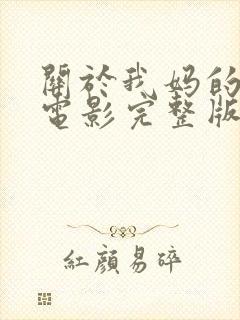 關於我妈的
電影完整版
紅顏易碎